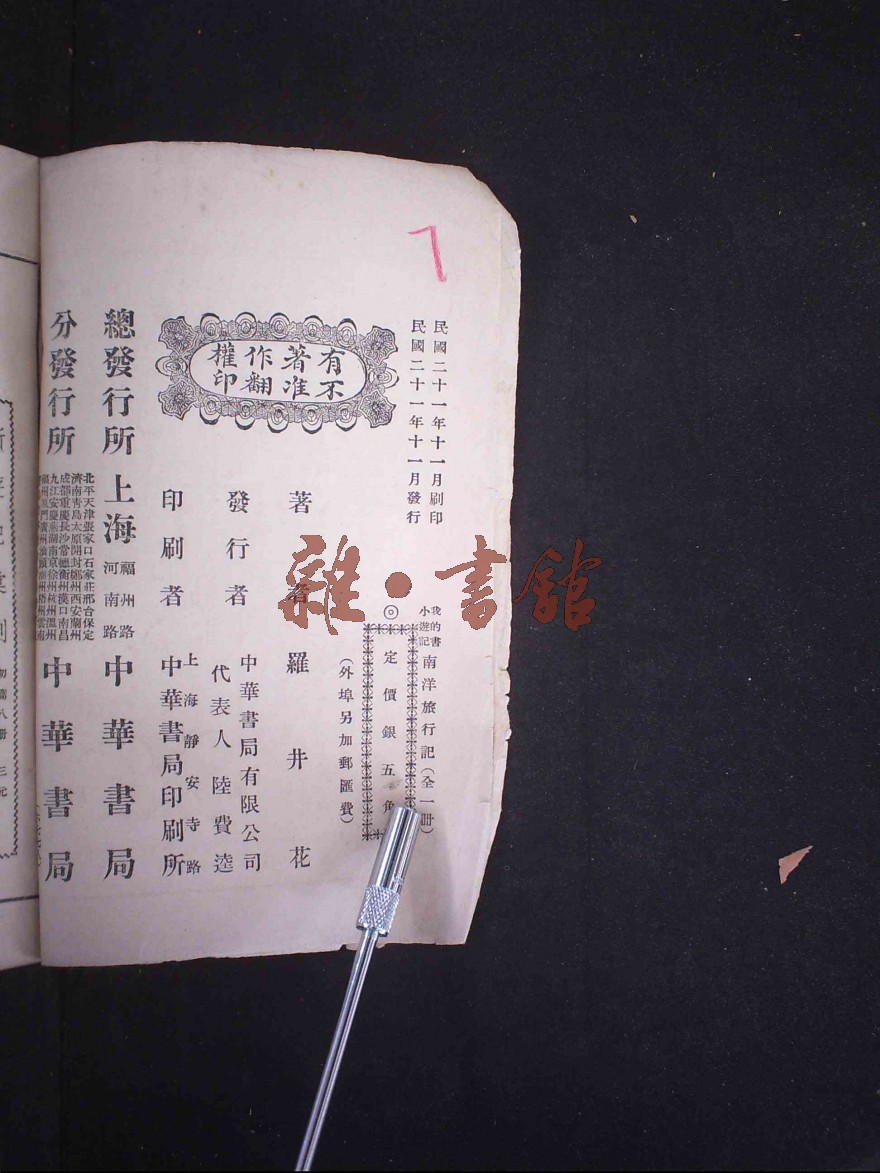 民國二十一年十一月刷印
民國二十一年十一月發行
我的書
小遊記
南洋旅行記(全一冊)
◎
定價銀五角
(外埠另加郵匯費)
有著作權
不准翻印
著者 羅井花
發行者 中華書局有限公司
代表人陸費逵
印刷者 上海靜安寺路
中華書局印刷所
總發行所 上海 福州路
河南路 中華書局
分發行所
北平天津張家口石家莊邢台保定
濟南青島太原開封鄭州西安蘭州
成都重慶長沙常德衡州漢口南昌
九江安慶蕪湖南京徐州杭州溫州
中華書局
雜·書館